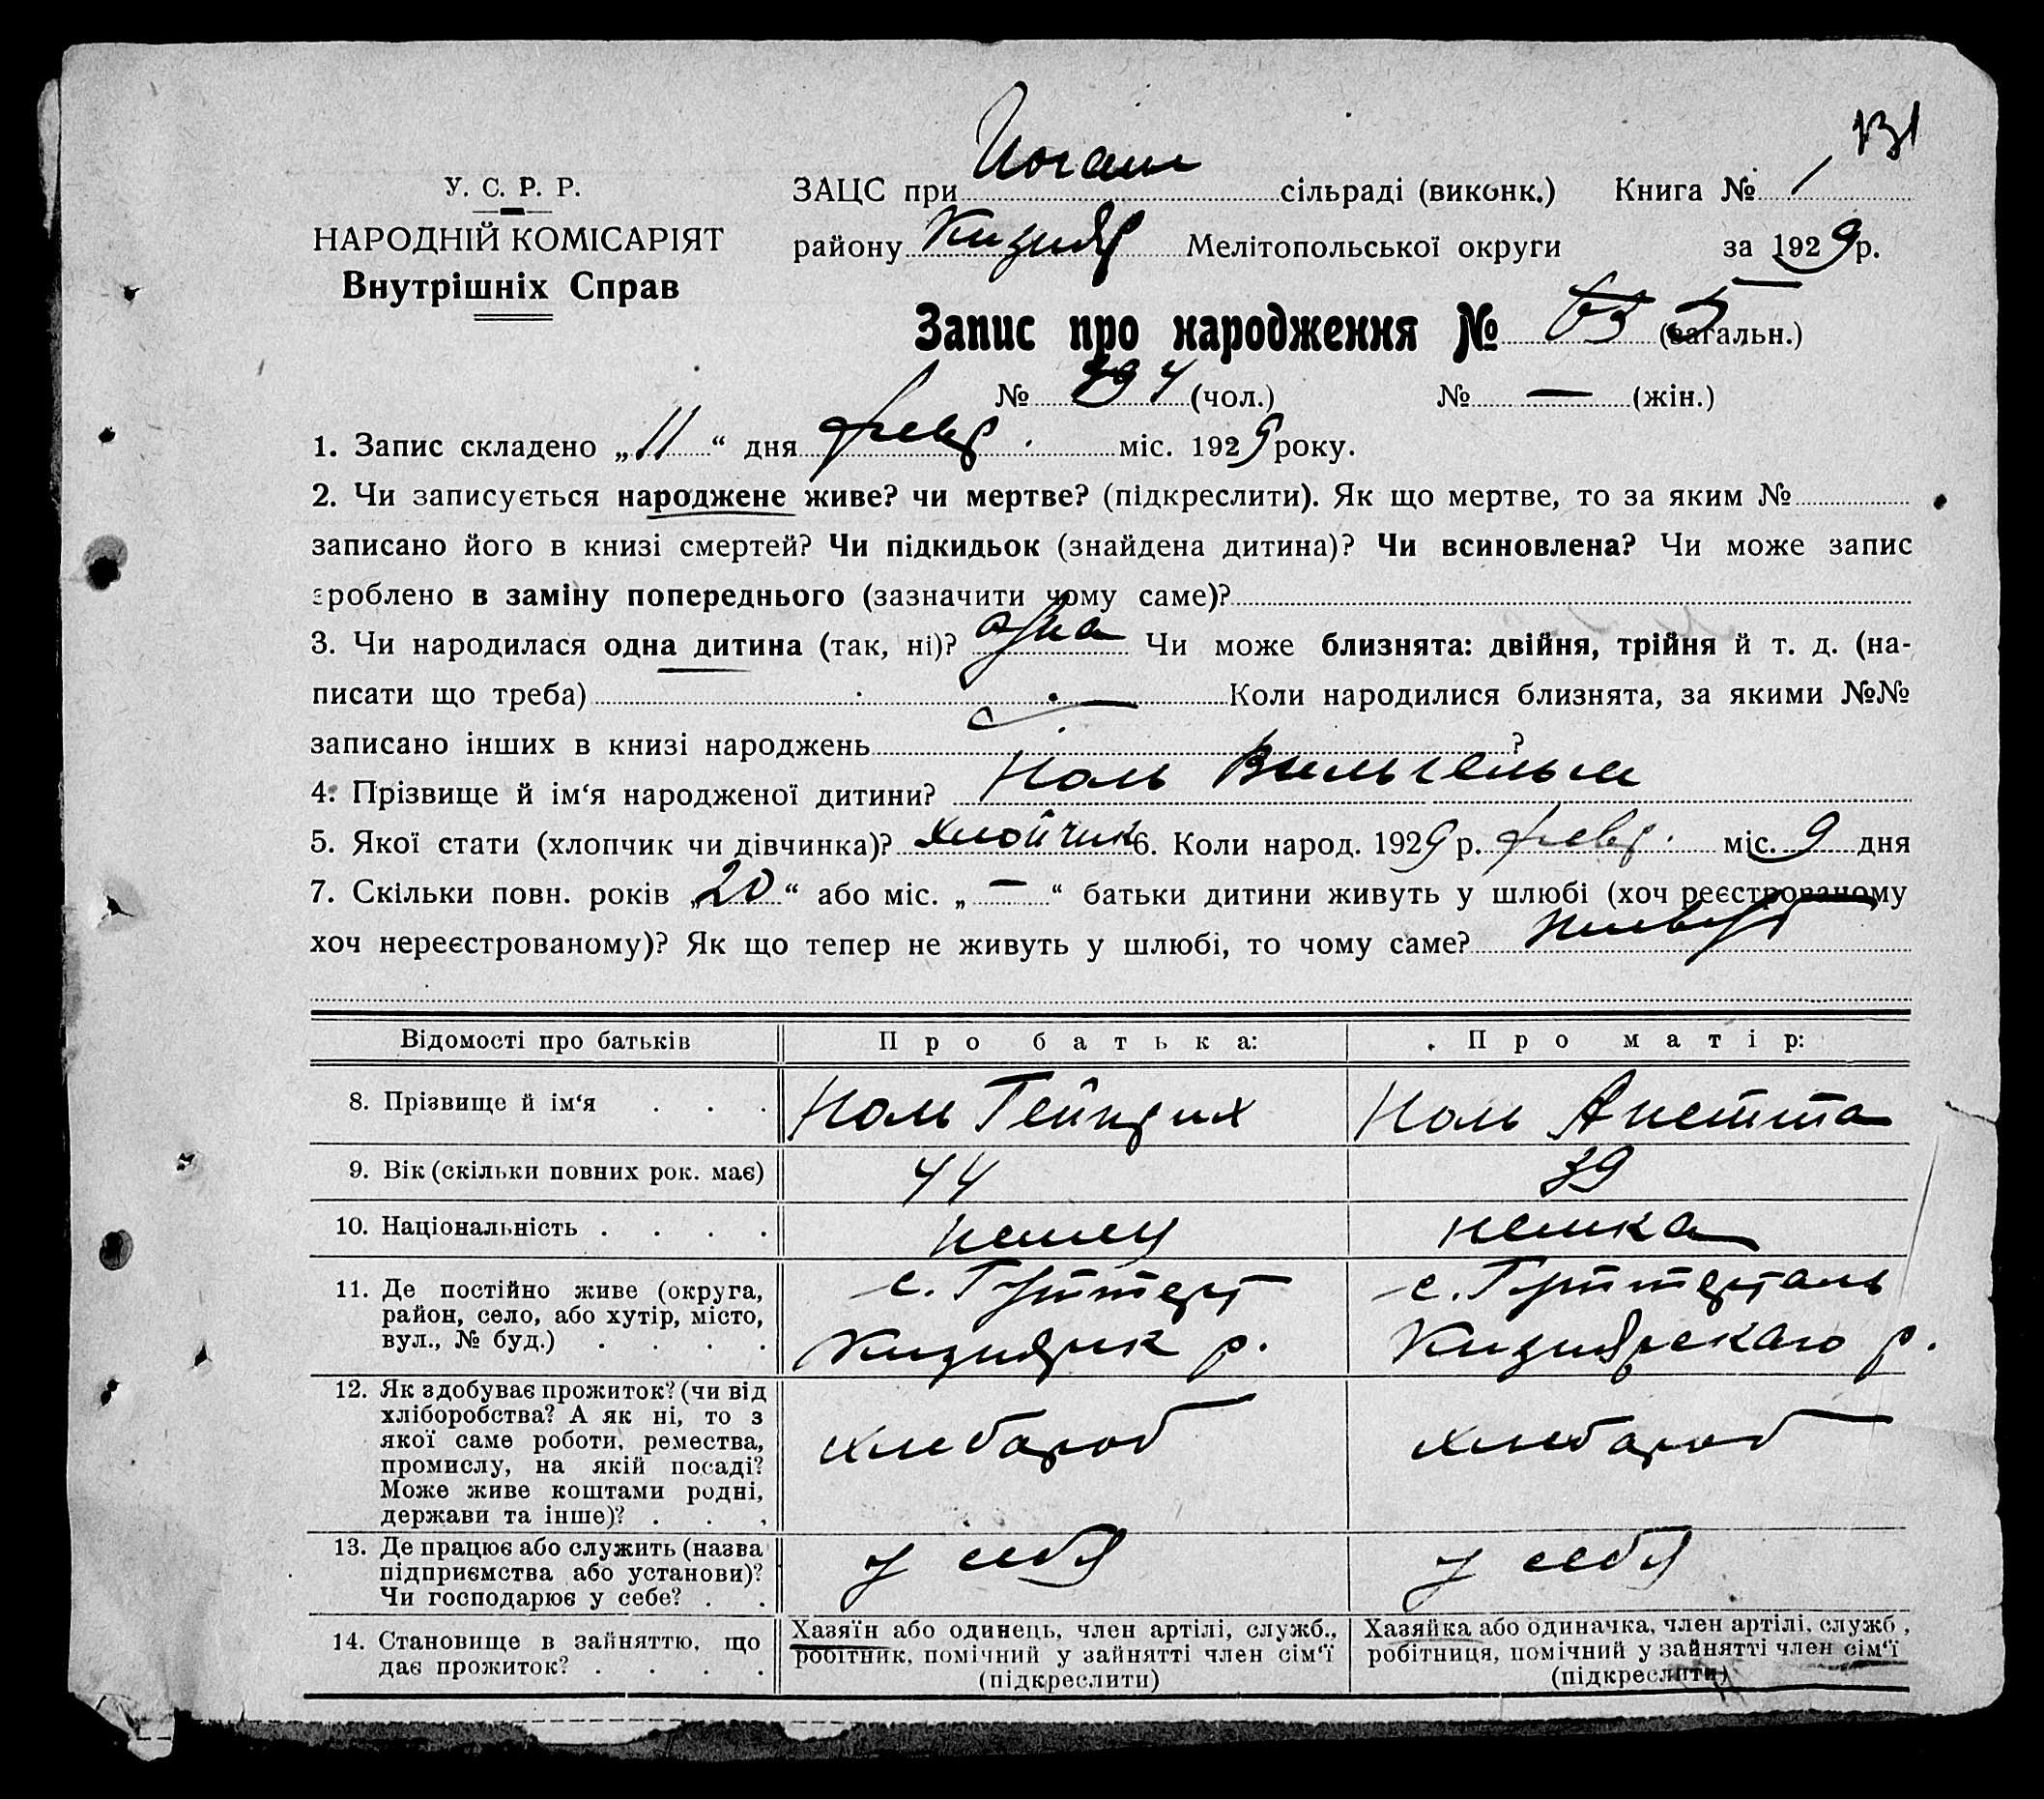 131
У. С. Р. Р.
НАРОДНІЙ КОМІСАРІЯТ
Внутрішніх Справ
ЗАЦС при сільраді (виконк.) Книга № 1
району Кизияр Мелітопольської округи за 1929 р.
Запис про народження № 5 (загальн.)
№ 4 (чол.) № — (жін.)
1. Запис складено „11“ дня февр. міс. 1929 року.
2. Чи записується народжене живе? чи мертве? (підкреслити). Як що мертве, то за яким №
записано його в книзі смертей? Чи підкидьок (знайдена дитина)? Чи всиновлена? Чи може запис
зроблено в заміну попереднього (зазначити чому саме)?
3. Чи народилася одна дитина (так, ні)? одна Чи може близнята: двійня, трійня й т. д. (на-
писати що треба) — Коли народилися близнята, за якими №№
записано інших в книзі народжень ?
4. Прізвище й ім‘я народженої дитини? Ноль Вильгельм
5. Якої стати (хлопчик чи дівчинка)? хлопчик 6. Коли народ. 1929 р. февр. міс. 9 дня
7. Скільки повн. років „20“ або міс. „—“ батьки дитини живуть у шлюбі (хоч реєстрованому
хоч нереєстрованому)? Як що тепер не живуть у шлюбі, то чому саме? живут
Відомості про батьків Про батька: Про матір:
8. Прізвище й ім‘я . . . Ноль Гейнрих Ноль Анетта
9. Вік (скільки повних рок. має) 44 39
10. Національність . . . . немец немка
11. Де постійно живе (округа, район, село, або хутір, місто, вул., № буд.) . . . .
с. Гуттерт с. Гуттерталь
Кизиярск р. Кизиярскаго р.
12. Як здобуває прожиток? (чи від
хліборобства? А як ні, то з
якої саме роботи, ремества,
промислу, на якій посаді?
Може живе коштами родні,
держави та інше)? . . .
хлебароб хлебароб
13. Де працює або служить (назва
підприємства або установи)?
Чи господарює у себе? . .
у себя у себя
14. Становище в зайняттю, що
дає прожиток? . . . .
Хазяїн або одинець, член артілі, служб.,
робітник, помічний у зайнятті член сім‘ї
(підкреслити)
Хазяйка або одиначка, член артілі, служб.,
робітниця, помічний у зайнятті член сім‘ї
(підкреслити)